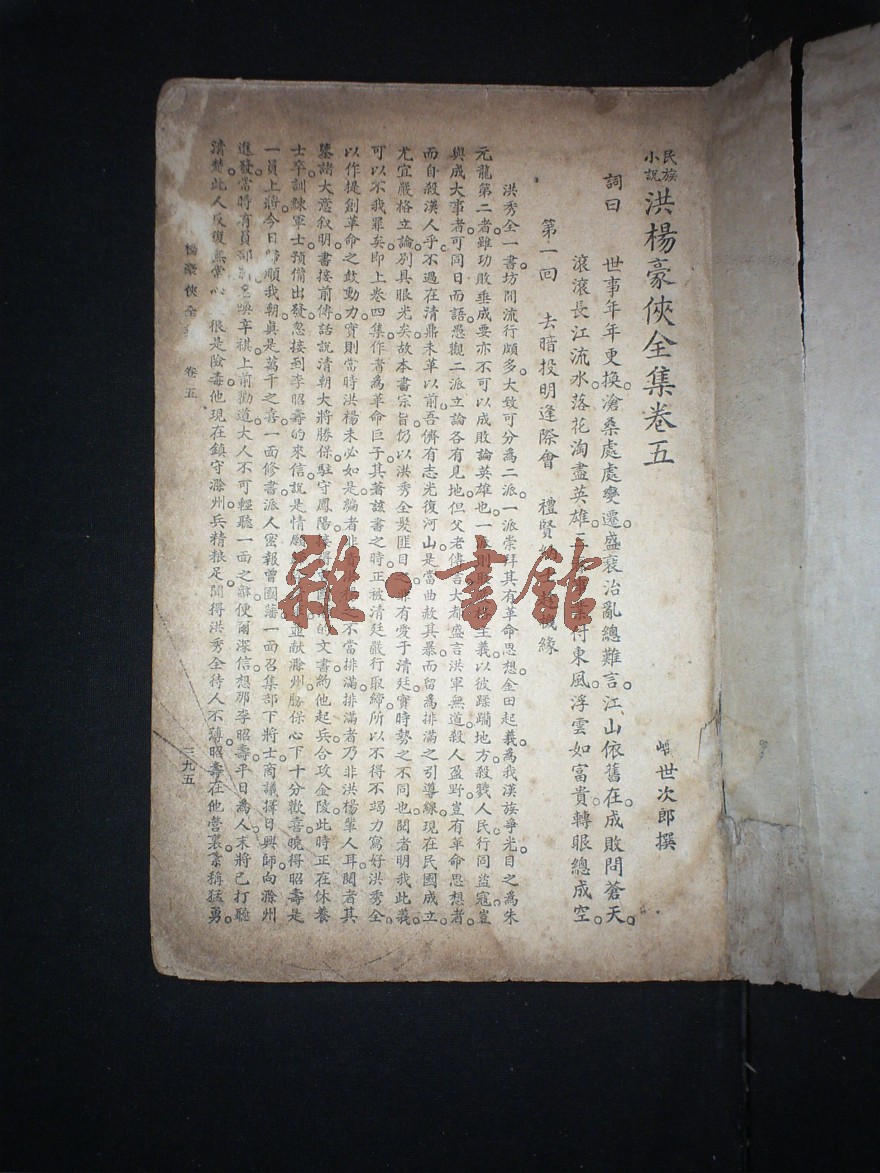 民族小說 洪楊豪俠全集卷五
世次郎撰
詞曰 世事年年更換。滄桑處處變遷。盛衰治亂總難言。江山依舊在。成敗問蒼天。
滾滾長江流水。落花淘盡英雄。付東風。浮雲如富貴。轉眼總成空。
第一回 去暗投明逢際會 禮賢 緣
洪秀全一書。坊間流行頗多。大致可分為二派。一派崇拜其有革命思想。金田起義。為我漢族爭光。目之為朱
元龍第二者。雖功敗垂成。要亦不可以成敗論英雄也。一 主義。以彼蹂躪地方。殺戮人民。行同盜寇。豈
與成大事者。可同日而語。愚觀二派立論。各有見地。但父老傳言。大都盛言洪軍無道。殺人盈野。豈有革命思想者。
而自殺漢人乎。不過在清鼎未革以前。吾儕有志光復河山。是當曲赦其暴。而留為排滿之引導線。現在民國成立。
尤宜嚴格立論。別具眼光矣。故本書宗旨。仍以洪秀全髮匪目之。非有愛于清廷。實時勢之不同也。閱者明我此義。
可以不我罪矣。即上卷四集。作者為革命巨子。其著該書之時。正被清廷嚴行取締。所以不得不竭力寫好洪秀全
以作提創革命之鼓動力。實則當時洪楊未必如是。編者非 不當排滿。排滿者乃非洪楊輩人耳。閱者其
鑒諸。大意叙明。書接前傳。話說清朝大將勝保。駐守鳳陽。接得 的文書。約他起兵合攻金陵。此時正在休養
士卒。訓練軍士。預備出發。忽接到李昭壽的來信。說是情願 並獻滁州。勝保心下十分歡喜。曉得昭壽是
一員上將。今日歸順我朝。真是萬千之喜。一面修書派人密報曾國藩。一面召集部下將士商議。擇日興師。向滁州
進發。當時有員部將 辛祺。上前勸道。大人不可輕聽一面之辭。便爾深信。想那李昭壽平日為人。末將已打聽
清楚。此人反復無常。心 狠是險毒。他現在鎮守滁州。兵精粮足。聞得洪秀全待人不薄。昭壽在他營裏。素稱猛勇。
楊豪俠全 卷五 三九五
雜·書館